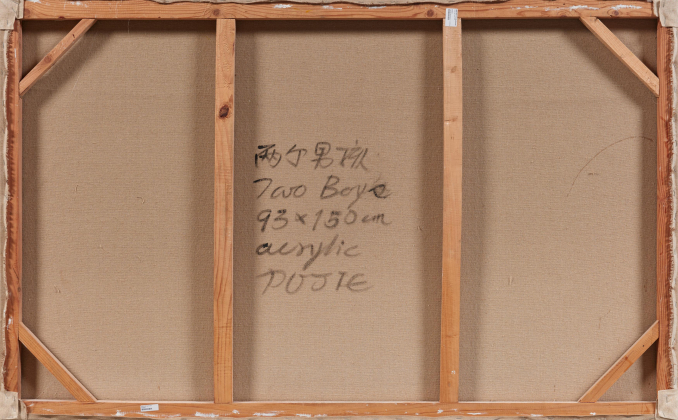 两个男孩
Two Boys
93×150cm
acrylic
DUJIE